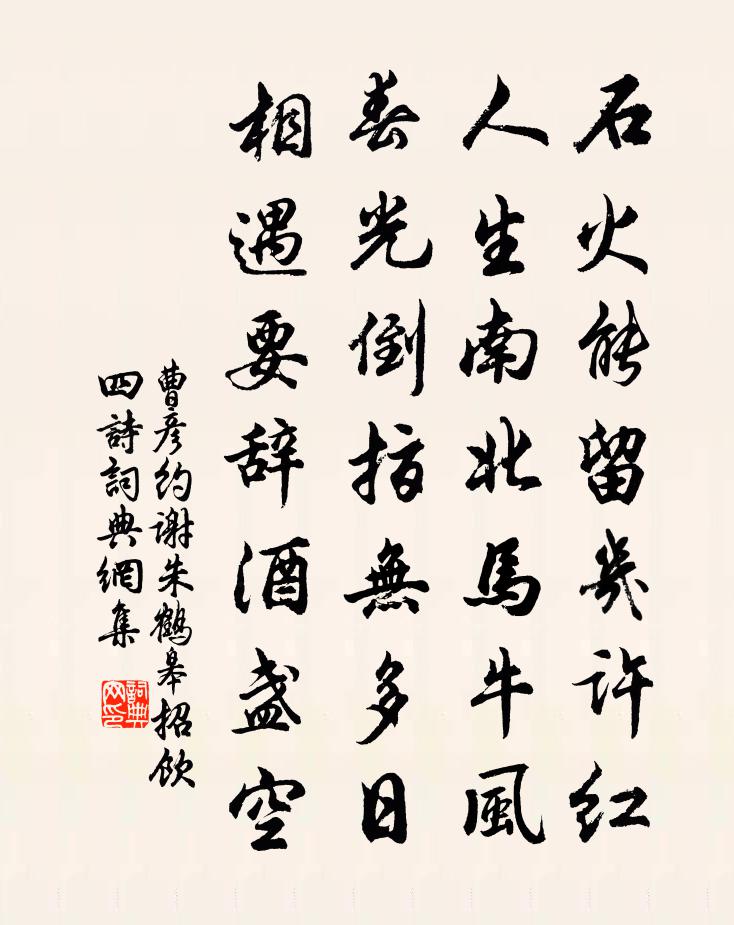 石火能留幾許紅
人生南北馬牛風
春光倒指無多日
相遇要辞酒盏空
曹彦約谢朱鶴皋招飲
四詩詞典網集
詞典
网印